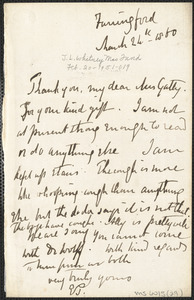 Farringford
March 24th 1880
J. L. Whitney
Feb. 20-1951-419
Thank you, my dear Mrs Gatty
For your kind gift. I am not
at present strong enough to read
or do anything else I am
kept up stairs. The cough is more
like whooping cough than anything
else but the doctor says it is not that
the boys have coughs. Ally is pretty well
We are sorry you cannot come
with Dr Wolff With kind regards
to them from us both
very truly yours
MS 6095 (64)